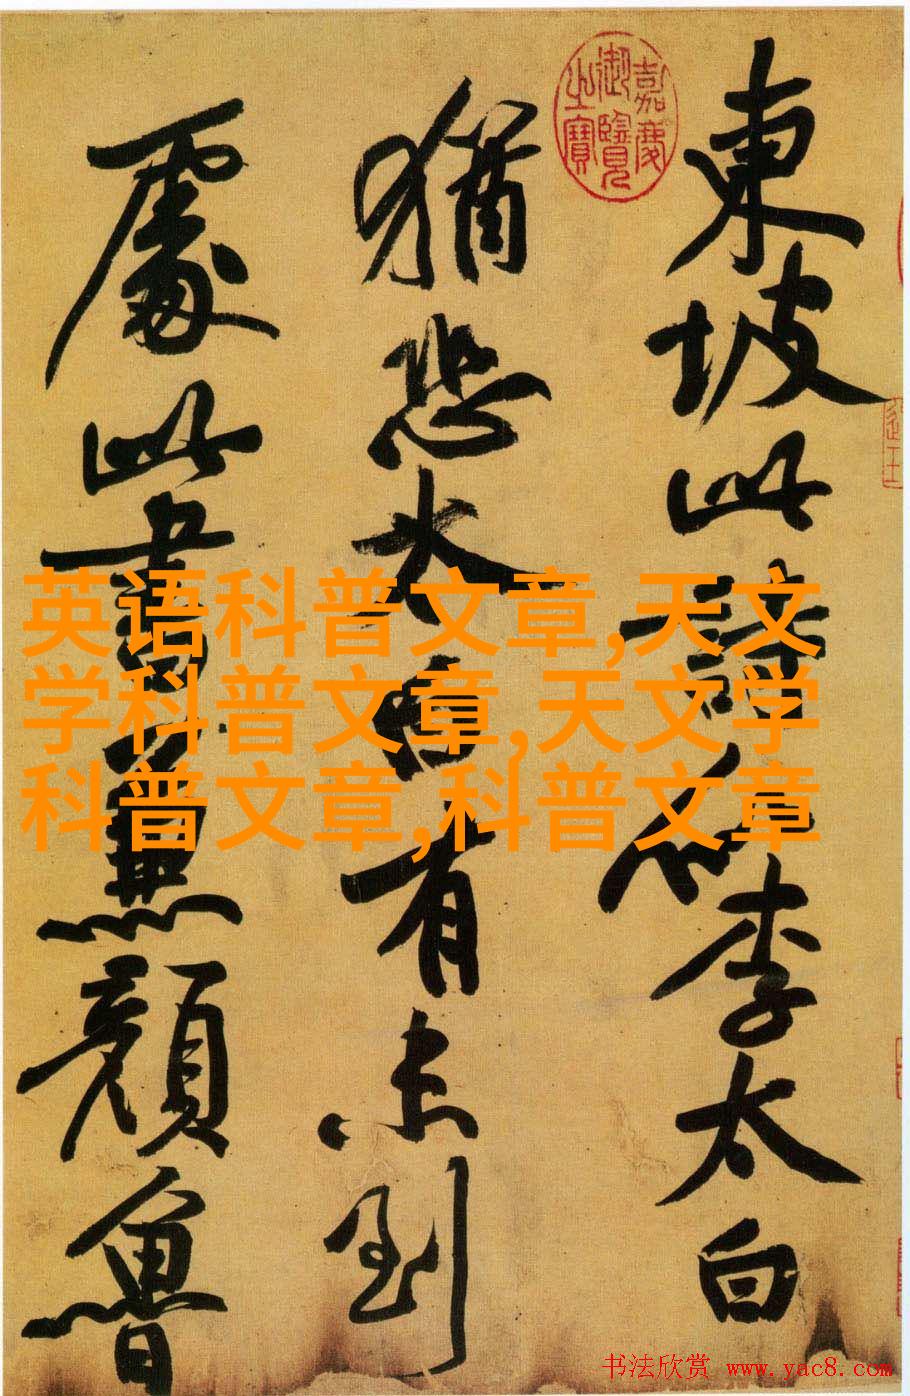 東坡此詩似李太白
猶恐太白有未到
處此書兼顏魯
嘉慶
御覽
之寶
英语科普文章,天文
学科普文章,天文学
科普文章,科普文章
书法欣赏 www.yac8.com